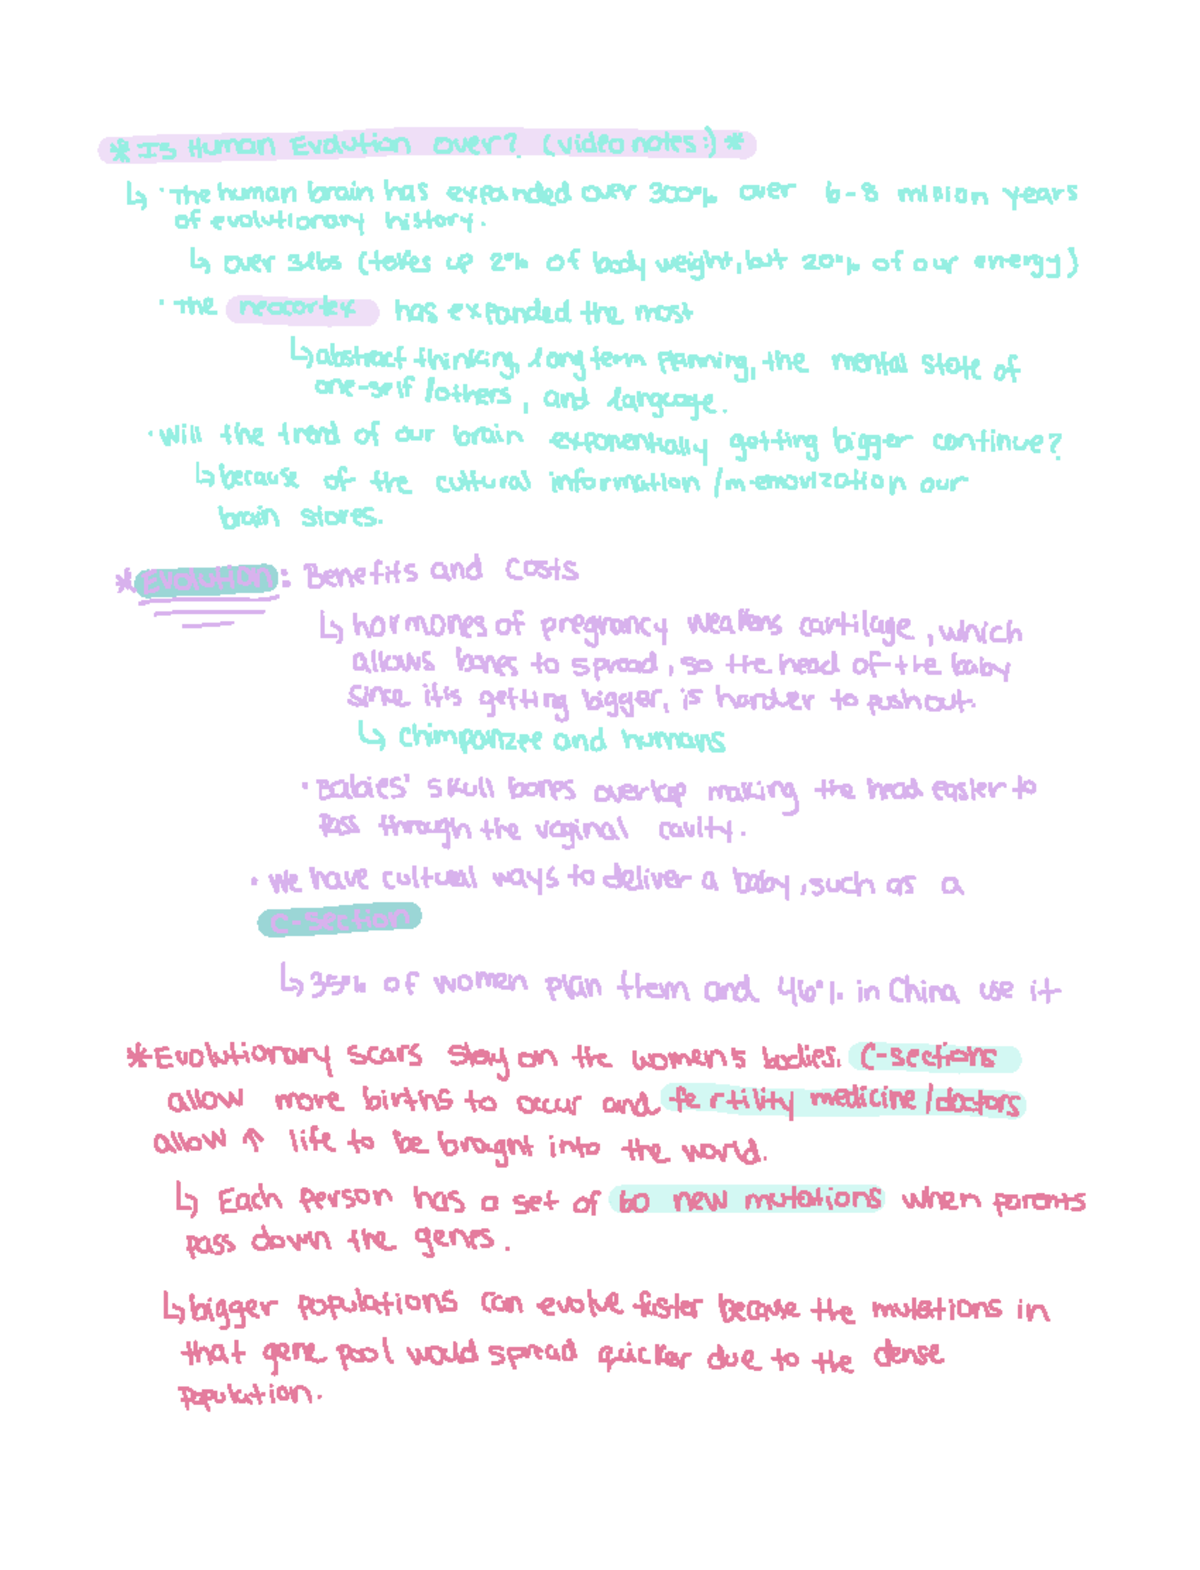 * Is Human Evolution over? (video notes:) *
↳ · The human brain has expanded over 300% over 6-8 million years
of evolutionary history.
↳ over 3lbs (takes up 2% of body weight, but 20% of our energy)
· The neocortex has expanded the most
↳ abstract thinking, long term planning, the mental state of
one-self/others, and language.
· Will the trend of our brain exponentially getting bigger continue?
↳ because of the cultural information/memorization our
brain stores.
* Evolution: Benefits and Costs
↳ hormones of pregnancy weakens cartilage, which
allows bones to spread, so the head of the baby
since it's getting bigger, is harder to push out.
↳ Chimpanzee and humans
· Babies' skull bones overlap making the head easier to
pass through the vaginal cavity.
· We have cultural ways to deliver a baby, such as a
C-section
↳ 35% of women plan them and 46% in China use it
* Evolutionary scars stay on the women's bodies. C-sections
allow more births to occur and fertility medicine/doctors
allow ↑ life to be brought into the world.
↳ Each person has a set of 60 new mutations when parents
pass down the genes.
↳ bigger populations can evolve faster because the mutations in
that gene pool would spread quicker due to the dense
population.